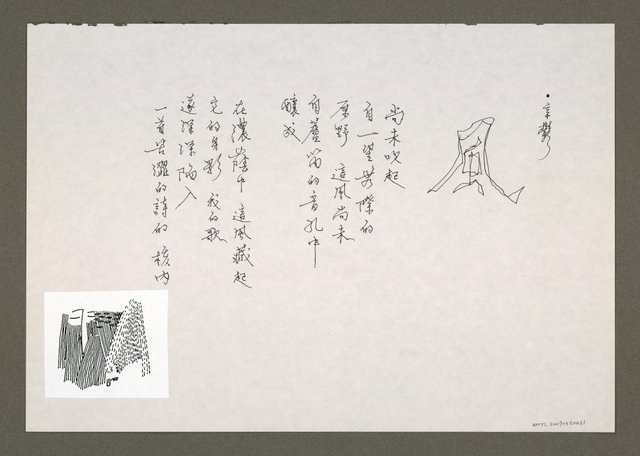 •辛鬱
風
尚未吹起
自一望無際的
原野 這風尚未
自蘆笛的音孔中
釀成
在濃蔭中 這風藏起
它的身影 我的歌
遂深深陷入
一首苦澀的詩的 核內
NMTL 20090320031